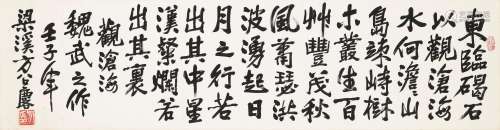 東臨碣石
以觀滄海
水何澹山
島竦峙樹
木叢生百
艸豐茂秋
風蕭瑟洪
波湧起日
月之行若
出其中星
漢粲爛若
出其裏
觀滄海
魏武之作
壬子年
梁溪方召麐